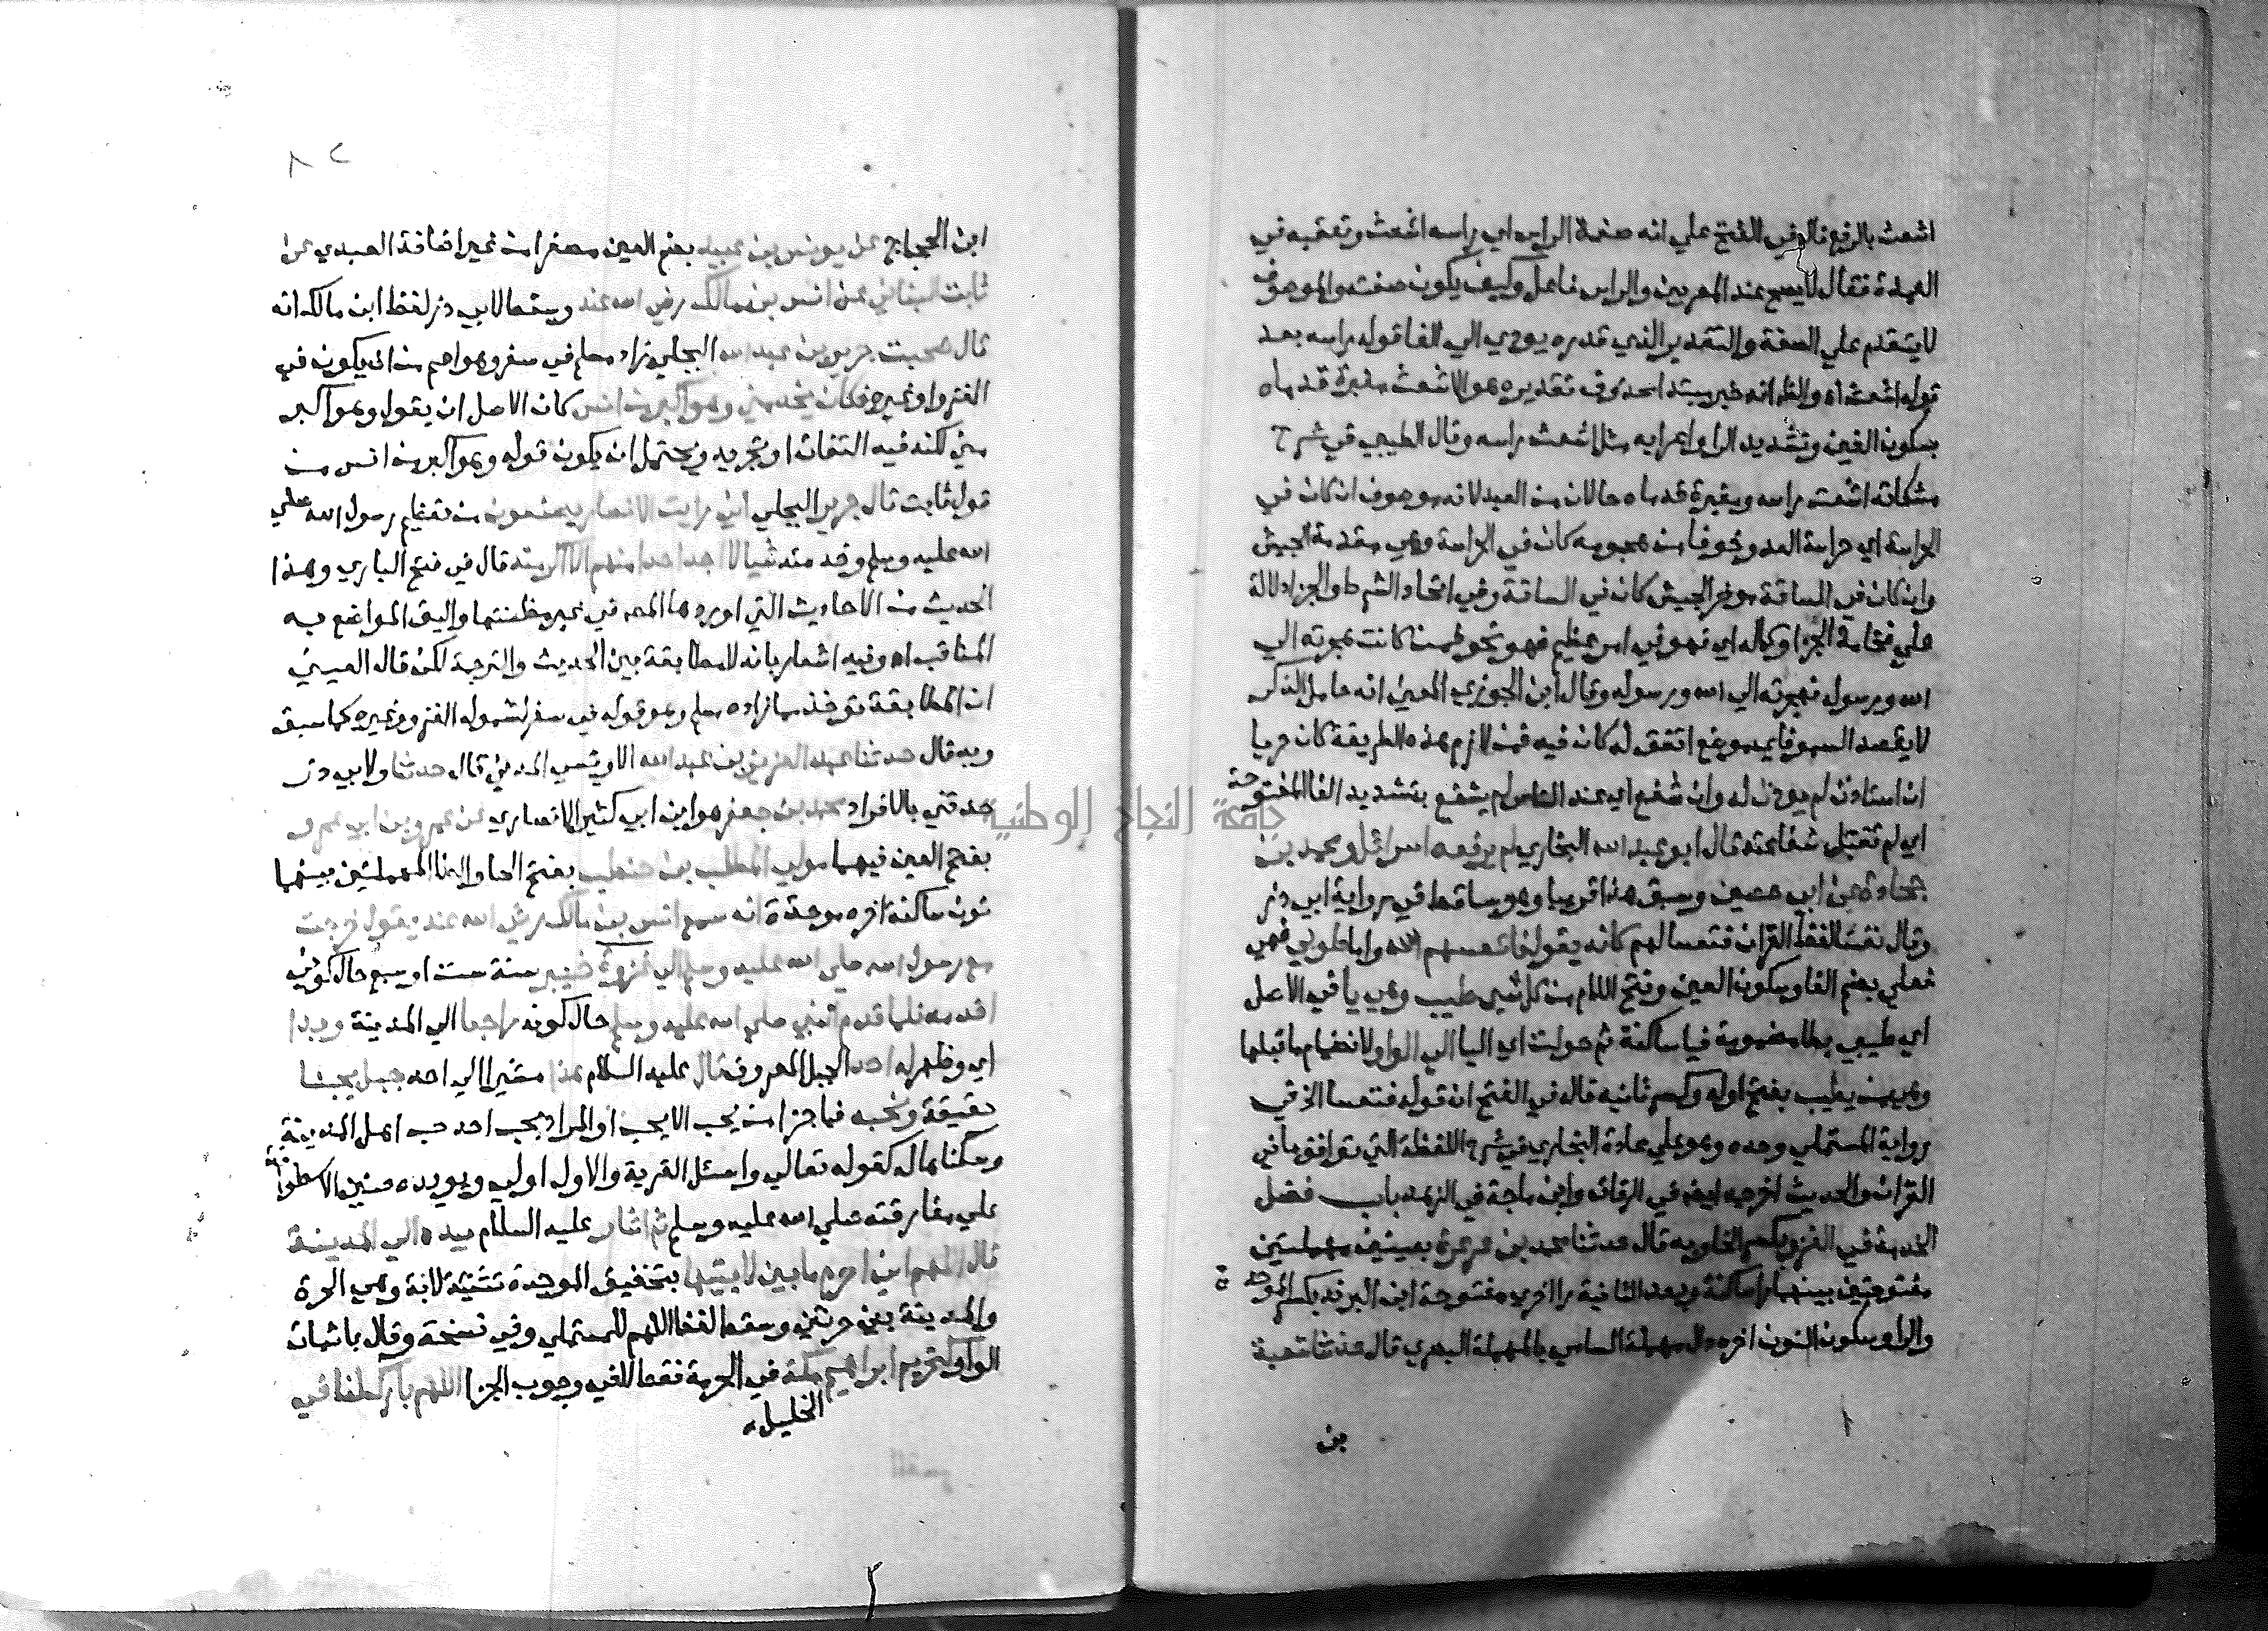 اشعث بالرفع قال في الفتح علي انه صفة الراس اي راسه اشعث وتعقبه في
العمدة فقال لا يصح عند المعربين والراس فاعل وكيف يكون صفته والموصوف
لا يتقدم علي الصفة والتقدير الذي قدره يودي الي الغا قوله راسه بعد
قوله اشعث اه والظ انه خبر مبتدا محذوف تقديره هو الاشعث مغبرة قدماه
بسكون الغين وتشديد الرا واعرابه مثل اشعث راسه وقال الطيبي في شرح
مشكاته اشعث راسه ومغبرة قدماه حالان من العبد لانه موصوف ان كان في
الحراسة اي حراسة العدو وخوفا من هجومه كان في الحراسة وهي مقدمة الجيش
وان كان في الساقة موخر الجيش كان في الساقة وفي اتحاد الشرط والجزا دلالة
علي فخامة الجزا وكماله اي فهو في امر عظيم فهو نحو فمن كانت هجرته الي
الله ورسوله فهجرته الي الله ورسوله وقال ابن الجوزي المعني انه خامل الذكر
لا يقصد السمو فاي موضع اتفق له كان فيه فمن لازم هذه الطريقة كان حريا
ان استاذن لم يوذن له وان شفع اي عند الناس لم يشفع بتشديد الفا المفتوحة
اي لم تقبل شفاعته قال ابو عبد الله البخاري لم يرفعه اسرائيل ومحمد بن
جحادة عن ابي حصين وسبق هذا قريبا وهو ساقط في رواية ابي ذر
وقال تعسا لفظ القران فتعسا لهم كانه يقول فاتعسهم الله واما طوبي فهي
فعلي بضم الفا وسكون العين وفتح اللام من كل شي طيب وهي يا في الاصل
اي طيبي بطا مضمومة فيا ساكنة ثم حولت اي اليا الي الواو لانضمام ما قبلها
وهي من يطيب بفتح اوله وكسر ثانيه قال في الفتح ان قوله فتعسا الخ في
رواية المستملي وحده وهو علي عادة البخاري في شرح اللفظة التي توافق ما في
القران والحديث اخرجه ايضا في الرقاق وابن ماجة في الزهد باب فضل
الخدمة في الغزو بكسر الخا وبه قال حدثنا محمد بن عرعرة بعينين مهملتين
مفتوحتين بينهما را ساكنة وبعد الثانية را اخري مفتوحة ابن البرند بكسر الموحدة
والرا وسكون النون اخره دال مهملة السامي بالمهملة البصري قال حدثنا شعبة
بن
ابن الحجاج عن يونس بن عبيد بضم العين مصغرا من غير اضافة العبدي عن
ثابت البناني عن انس بن مالك رضي الله عنه وسقط لابي ذر لفظ ابن مالك انه
قال صحبت جرير بن عبد الله البجلي زاد مسلم في سفر وهو اعم من ان يكون في
الغزو او غيره فكان يخدمني وهو اكبر من انس كان الاصل ان يقول وهو اكبر
مني لكنه فيه التفات او تجريد ويحتمل ان يكون قوله وهو اكبر من انس من
قول ثابت قال جرير البجلي اني رايت الانصار يصنعون من تعظيم رسول الله صلي
الله عليه وسلم وخدمته شيا لا اجد احدا منهم الا اكرمته قال في فتح الباري وهذا
الحديث من الاحاديث التي اوردها المص في غير مظنتها واليق المواضع به
المناقب اه وفيه اشعار بانه لا مطابقة بين الحديث والترجمة لكن قال العيني
ان المطابقة توخذ مما زاده مسلم وهو قوله في سفر لشموله الغزو وغيره كما سبق
وبه قال حدثنا عبد العزيز بن عبد الله الاويسي المدني قال حدثنا ولابي ذر
حدثني بالافراد محمد بن جعفر هو ابن ابي كثير الانصاري عن عمرو بن ابي عمرو
بفتح العين فيهما مولي المطلب بن حنطب بفتح الحا والطا المهملتين بينهما
نون ساكنة اخره موحدة انه سمع انس بن مالك رضي الله عنه يقول خرجت
مع رسول الله صلي الله عليه وسلم الي غزوة خيبر سنة ست او سبع حال كوني
اخدمه فلما قدم النبي صلي الله عليه وسلم حال كونه راجعا الي المدينة وبدا
اي وظهر له احد الجبل المعروف قال عليه السلام هذا مشيرا الي احد جبل يحبنا
حقيقة ونحبه فما جزا من يحب الا يحب او المراد بحب احد حب اهل المدينة
وسكنا ها له كقوله تعالي واسئل القرية والاول اولي ويويده حنين الاسطوانة
علي مفارقته صلي الله عليه وسلم ثم اشار عليه السلام بيده الي المدينة
قال اللهم اني احرم ما بين لابتيها بتخفيف الموحدة تثنية لابة وهي الحرة
والمدينة بين حرتين وسقط لفظ اللهم للمستملي وفي نسخة وقال باثبات
الواو كتحريم ابراهيم مكة في الحرمة فقط لا في وجوب الجزا اللهم بارك لنا في
الخليل
جامعة النجاح الوطنية